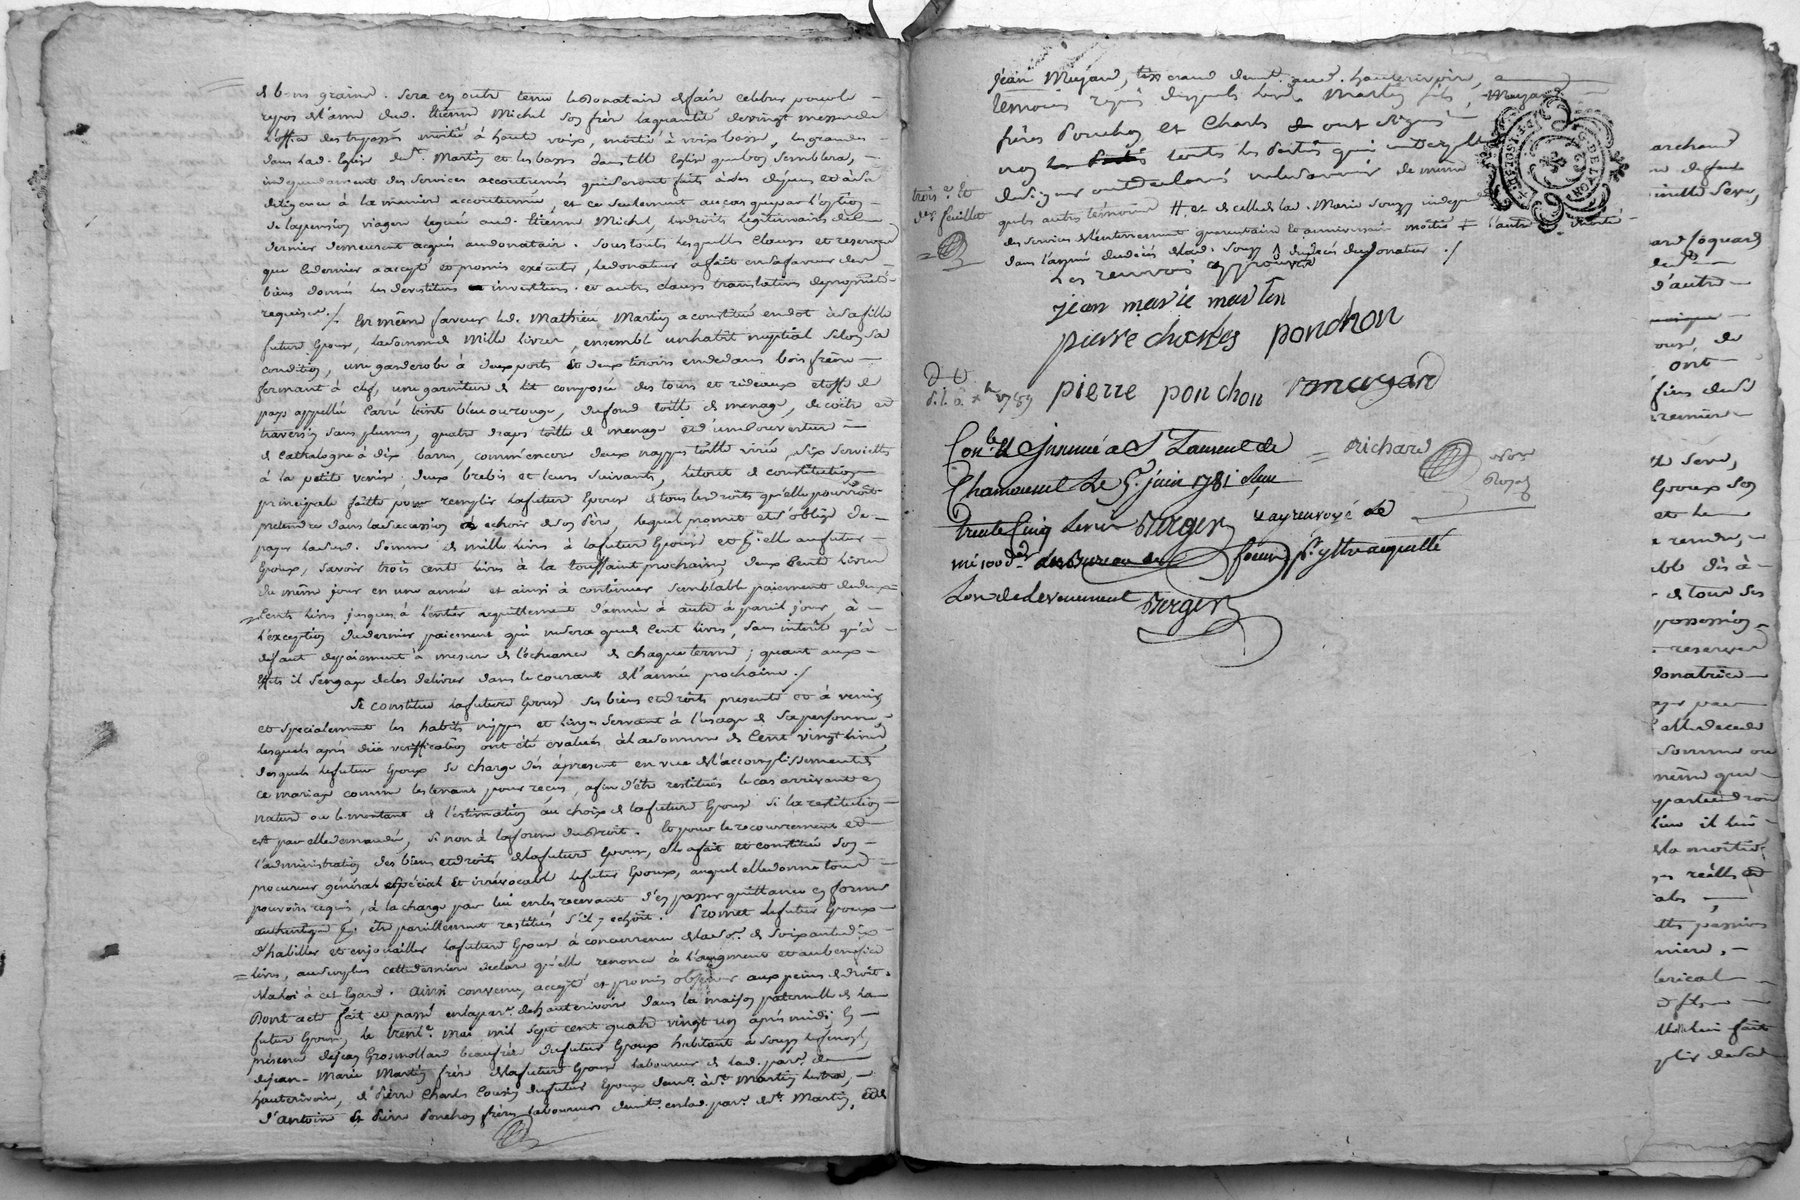 de bons grains. Sera en outre tenu le donataire de faire celebrer pour le
repos de l'ame dud. Etienne Michel son frère la quantité de vingt messes de
l'office des trepassés moitié à haute voix, moitié à voix basse, les grandes
dans lad. Eglise de St. Martin et les basses dans telle Eglise que bon semblera,
independament des services accoutumés qui seront faits à ses dépens et à sa
diligence à la maniere accoutumée, et ce seulement au cas que par l'option
de la pension viagere leguée aud. Etienne Michel, les droits legitimaires de ce
dernier demeurent acquis au donataire. Sous toutes lesquelles clauses et reserves
que le dernier a accepté et promis exécuter, le donateur a fait en sa faveur des
biens donnés les devestitures investitures et autres clauses translatives de propriété
requises ./. En même faveur led. Mathieu Martin a constitué en dot à sa fille
future Epouse, la somme de Mille Livres, ensemble un habit nuptial selon sa
condition, une garderobe à deux portes et deux tiroirs en dedans bois frêne
fermant à clef, une garniture de lit composée des tours et rideaux etoffe de
pays appellée Carré teint bleu ou rouge, du fond toille de menage, de coitre et
traversin sans plumes, quatre draps toille de menage et d'une couverture
de Cathalogne à dix barres, comme encore deux nappes toille virée, six serviettes
à la petite venise, deux brebis et leurs suivants, le tout de constitution
principale faitte pour remplir la future Epouse de tous les droits qu'elle pourroit
pretendre dans la succession à echoir de son Père, lequel promet et s'oblige de
payer lad. Somme de mille livres à la future Epouse et p. elle au futur
Epoux, savoir trois cents livres à la toussaint prochaine, deux Cents Livres
du même jour en une année et ainsi à continuer semblable paiement de deux
Cents livres jusques à l'entier acquittement d'année à autre à pareil jour, à
l'exception du dernier paiement qui ne sera que de Cent livres, sans interêt qu'à
défaut de paiement à mesure de l'échéance de chaque terme; quant aux
Effets il s'engage de les delivrer dans le courant de l'année prochaine ./
Se constitue la future Epouse ses biens et droits presents et à venir
et specialement les habits nippes et linges servant à l'usage de sa personne,
lesquels après düe verification ont été evalués à la somme de Cent vingt livres
desquels le futur Epoux se charge dès apresent en vue de l'accomplissement de
ce mariage comme les tenant pour reçus, afin d'être restitués le cas arrivant en
nature ou le montant de l'estimation au choix de la future Epouse si la restitution
est par elle demandée, si non à la forme du Droit. Et pour le recouvrement et
l'administration des biens et droits de la future Epouse, Elle a fait et constitué son
procureur général spécial et irrévocable le futur Epoux, auquel elle donne tous
pouvoirs requis, à la charge par lui en les recevant d'en passer quittance en forme
authentique p. être pareillement restitués s'il y echoit. Promet le futur Epoux
d'habiller et enjoailler la future Epouse à concurrence de la so.e de soixante dix
livres, au surplus cette derniere declare qu'elle renonce à l'augment et au benefice
de la loi à cet Egard. Ainsi convenu, accepté et promis observer aux peines de droit.
Dont acte fait et passé en la par.e de hauterivoire dans la maison paternelle de la
future Epouse, le trent.e mai mil sept cent quatre vingt un après midi, En
présence de jean Grosmollard beaufrère du futur Epoux habitant à Souzy
de jean-Marie Martin frère de la future Epouse laboureur de lad. par.e de
hauterivoire, de Pierre Charles Cousin du futur Epoux dem.t à St. Martin lestra,
d'Antoine et Pierre Ponchon frères laboureurs dem.t en lad. par.e de St. Martin, et de
jean Mujard, tisserand dem.t aud. hauterivoire,
temoins requis desquels lesd. Martin fils, Mujard
frères Ponchon et Charles ont signé
non toutes les Parties qui
de signer ont declaré ne le savoir de même
que les autres témoins # et de celle de lad. Marie Souzy independament
des services d'enterrement quarantaine et anniversaire moitié ‡ l'autre moitié
dans l'année du decès de lad. Souzy du donateur ./
Les renvois approuvés
trois.e et
der. feuillet
jean marie marten
pierre charles ponchon
pierre ponchon mugard
Con.lé & Insinué à St Laurent de
Chamousset Le 5. juin 1781 Reçu
trente Cinq livres Berger
Berger
Richard
not.re
Royal
G. DE LYON